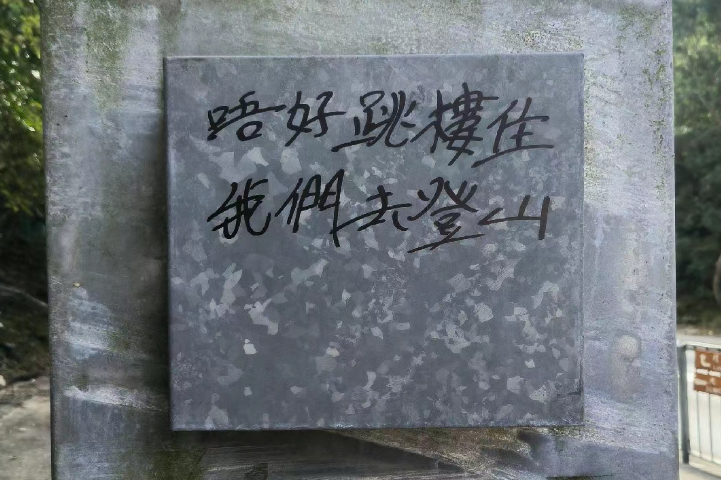 唔好跳樓住
我們去登山